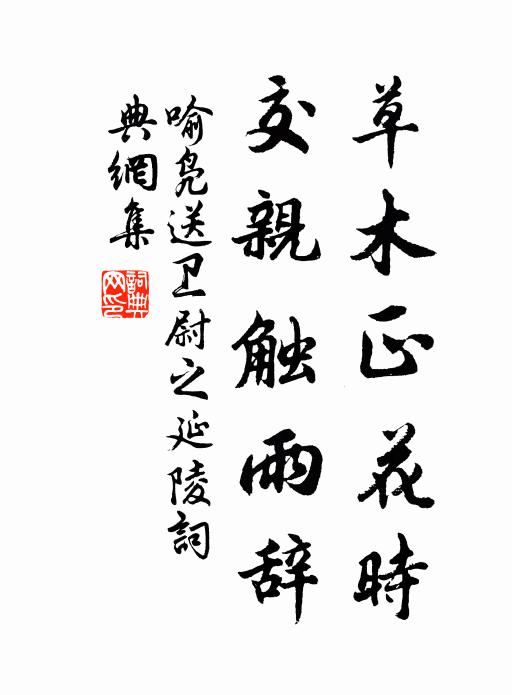 草木正花時
交親触雨辞
喻凫送卫尉之延陵詞
典網集
詞典网印